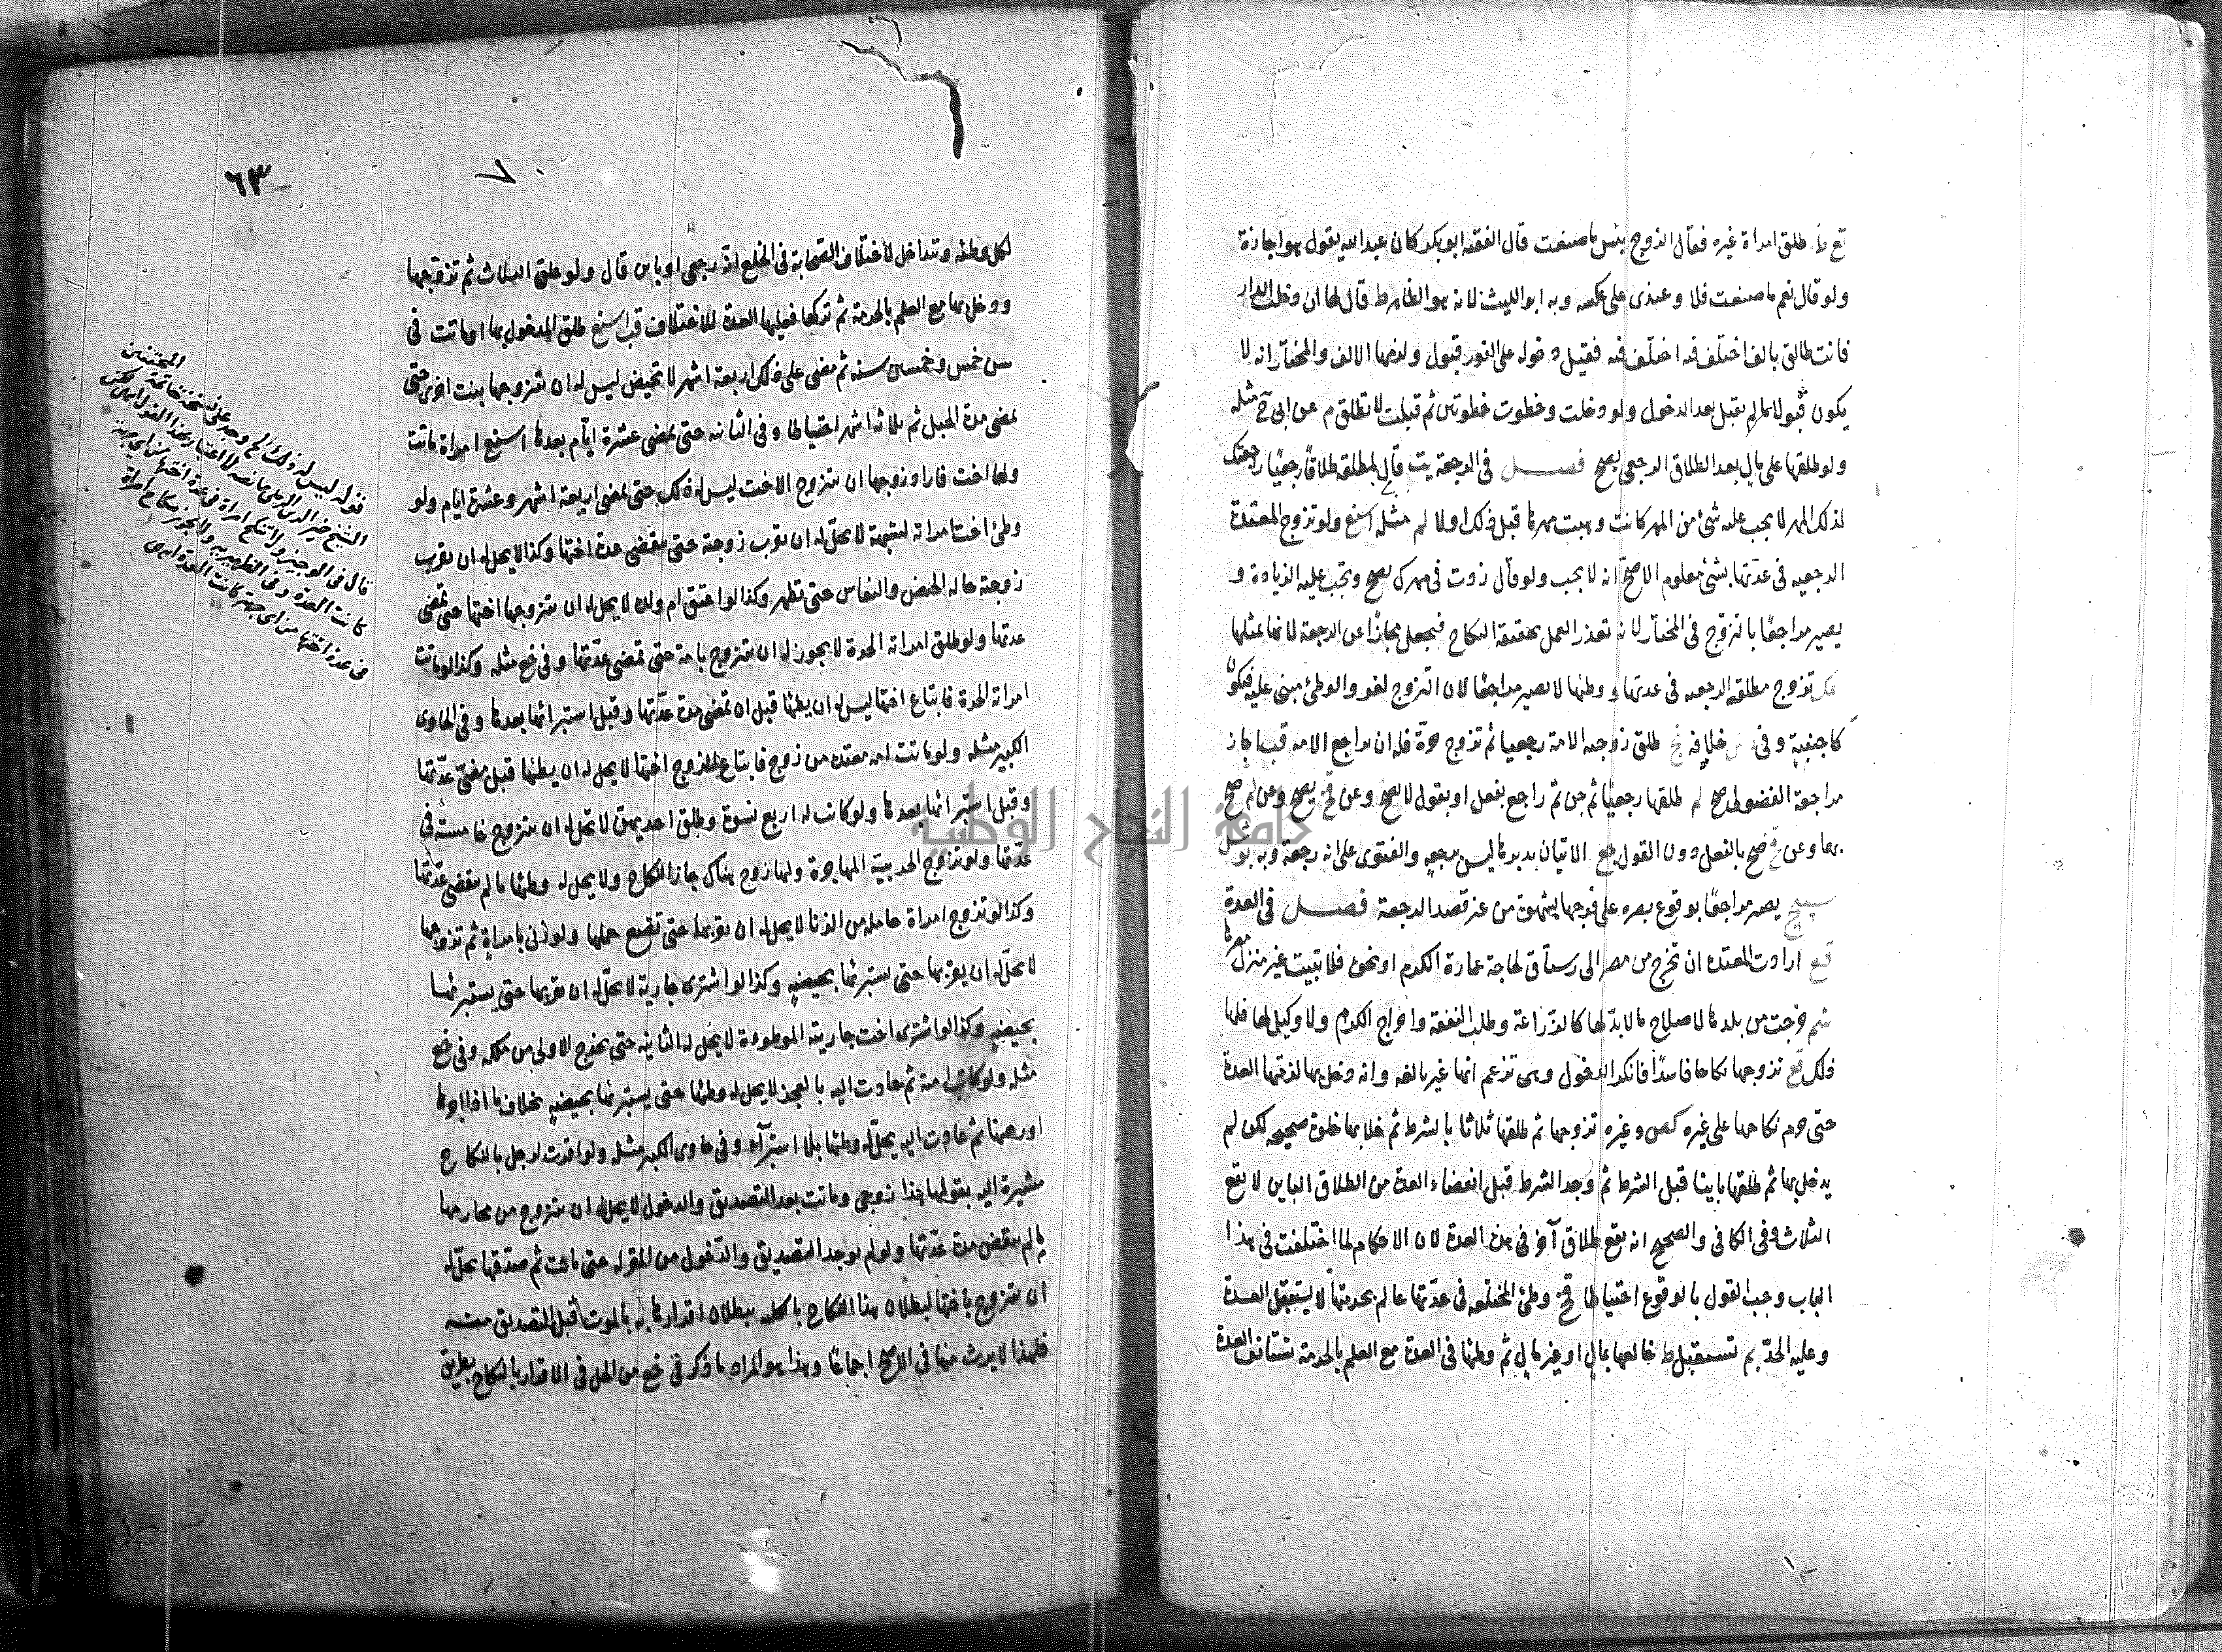 طلق امراة غيره فقال الزوج بئس ما صنعت قال الفقيه ابو بكر كان عبد الله يقول هو اجازة
ولو قال نعم ما صنعت فلا وعندى على عكسه وبه ابو الليث لانه هو الظاهر ط قال لها ان دخلت الدار
فانت طالق بالف اختلف فيه فقيل قوله على الفور قبول ولزمها الالف والمختار انه لا
يكون قبولا ما لم يقبل بعد الدخول ولو دخلت وخطوت خطوتين ثم قبلت لا تطلق م عن ابى ح مثله
ولو طلقها على مال بعد الطلاق الرجعى يصح فصل فى الرجعة يت قال لمطلقة طلاقا رجعيا راجعتك
لذلك المهر لا يجب عليه شئ من المهر كانت وهبت مهرها قبل ذلك اولا لم مثله اسنع ولو تزوج المعتدة
الرجعيه فى عدتها بشئ معلوم الاصح انه لا يجب ولو قال زدت فى مهرك يصح وتجب عليه الزيادة و
يصير مراجعا بالتزوج فى المختار لانه تعذر العمل بحقيقة النكاح فيجعل مجازا عن الرجعة لانها مثلها
تزوج مطلقه الرجعيه فى عدتها ووطئها لا يصير مراجعا لان التزوج لغو والوطئ مبنى عليه فيكون
كاجنبية وفى خلافه طلق زوجته الامة رجعيا ثم تزوج حرة فله ان يراجع الامه قب اجاز
مراجعة الفضولى صح لم طلقها رجعيا ثم جن ثم راجع بفعل او بقول لا يصح وعن يصح وعن لم صح
بهما وعن صح بالفعل دون القول جع الاتيان بدبرها ليس برجعه والفتوى على انه رجعة وبه
يصير مراجعا بوقوع بصره على فرجها بشهوة من غير قصد الرجعة فصل فى العدة
قع ارادت المعتدة ان تخرج من مصر الى رستاق لحاجة عمارة الكرم او نحوه فلا تبيت غير منزل
شم خرجت من بلدها لاصلاح ما لا بد لها كالزراعة وطلب النفقة واخراج الكرم ولا وكيل لها فلها
ذلك قع تزوجها نكاحا فاسدا فانكر الدخول وهى تزعم انها غير بالغه وانه دخل بها لزمتها العدة
حتى حرم نكاحها على غيره وغيره تزوجها ثم طلقها ثلاثا بالشرط ثم خلا بها خلوة صحيحه لكن لم
يدخل بها ثم طلقها باينا قبل الشرط ثم وجد الشرط قبل انقضاء العدة من الطلاق الباين لا يقع
الثلاث وفى الكافى والصحيح انه يقع طلاق آخر فى هذه العدة لان الاحكام لما اختلفت فى هذا
الباب وجب القول بالوقوع احتياطا وطئ المختلعه فى عدتها عالم بحرمتها لا يستقبل العدة
وعليه الحد بم تستقبل ط خالعها بمال او غير مال ثم وطئها فى العدة مع العلم بالحرمة تستانف العدة
٦٣
٧٠
لكل وطئه وتتداخل لاختلاف الصحابة فى الخلع انه رجعى او باين قال ولو طلق الثلاث ثم تزوجها
ودخل بها مع العلم بالحرمة ثم تركها فعليها العدة للاختلاف قب اسنع طلق المدخول بها او ماتت فى
سن خمس وخمسين سنه ثم مضى على ذلك اربعة اشهر لا تحيض ليس له ان تتزوجها بنت اخرى حتى
تمضى مدة الحبل ثم ثلاثة اشهر احتياطا وفى الثانيه حتى تمضى عشرة ايام بعدها اسنع امراة ماتت
ولها اخت فاراد زوجها ان يتزوج الاخت ليس له ذلك حتى تمضى اربعة اشهر وعشرة ايام ولو
وطئ اخت امراته لشبهة لا يحل له ان يقرب زوجته حتى ينقضى عدة اختها وكذا لا يحل له ان يقرب
زوجته حاله الحيض والنفاس حتى تطهر وكذا لو اعتق ام ولده لا يحل له ان يتزوجها اختها حتى تمضى
عدتها ولو طلق امراته الحرة لا يجوز له ان يتزوج بامة حتى تمضى عدتها وفى خع مثله وكذا لو ماتت
امراته الحرة فابتاع اختها ليس له ان يطئها قبل ان تمضى مدة عدتها وقبل استبرائها بعدها وفى الحاوى
الكبير مثله ولو ماتت امه معتدة من زوج فابتاع للزوج اختها لا يحل له ان يطئها قبل مضى عدتها
وقبل استبرائها بعدها ولو كانت له اربع نسوة وطلق احديهن لا تحل له ان يتزوج خامسه فى
عدتها ولو تزوج الحربية المهاجرة ولها زوج هناك جاز النكاح ولا يحل له وطئها ما لم تنقضى عدتها
وكذا لو تزوج امراة حامله من الزنا لا يحل له ان يقربها حتى تضع حملها ولو زنى بامراة ثم تزوجها
لا يحل له ان يقربها حتى يستبرئها بحيضه وكذا لو اشترى جارية لا تحل له ان يقربها حتى يستبرئها
بحيضه وكذا لو اشترى اخت جاريته الموطوءة لا يحل له الثانيه حتى يخرج الاولى من ملكه وفى خع
مثله ولو كاتب امة ثم عادت اليه بالعجز لا يحل له وطئها حتى يستبرئها بحيضه بخلاف ما اذا اجرها
او رهنها ثم عادت اليه يحل له وطئها بلا استبراء وفى حاوى الكبير مثله ولو اقرت لرجل بالنكاح
مشيرة اليه بقولها هذا زوجى وماتت بعد التصديق والدخول لا يحل له ان يتزوج من محارمها
ما لم ينقض مدة عدتها ولو لم يوجد التصديق والدخول من المقر له حتى ماتت ثم صدقها يحل له
ان يتزوج باختها لبطلان هذا النكاح بالكليه ببطلان اقرارها به بالموت قبل التصديق منه
فلهذا لا يرث منها فى الاصح اجماعا وهذا هو المراد ما ذكر فى خع من الحل فى الاقرار بالنكاح بطريق
قوله ليس له ذلك الخ وجد على نسخة خاتمة المحققين
الشيخ خير الدين الرملى ما نصه لا اعتبار بهذا القول
قال فى الوجيز ولا تنكح امراة فى عدة اختها من اى جهة
كانت العدة وفى الظهيريه ولا يجوز نكاح امراة
فى عدة اختها من اى جهة كانت العدة
جامعة النجاح الوطنية